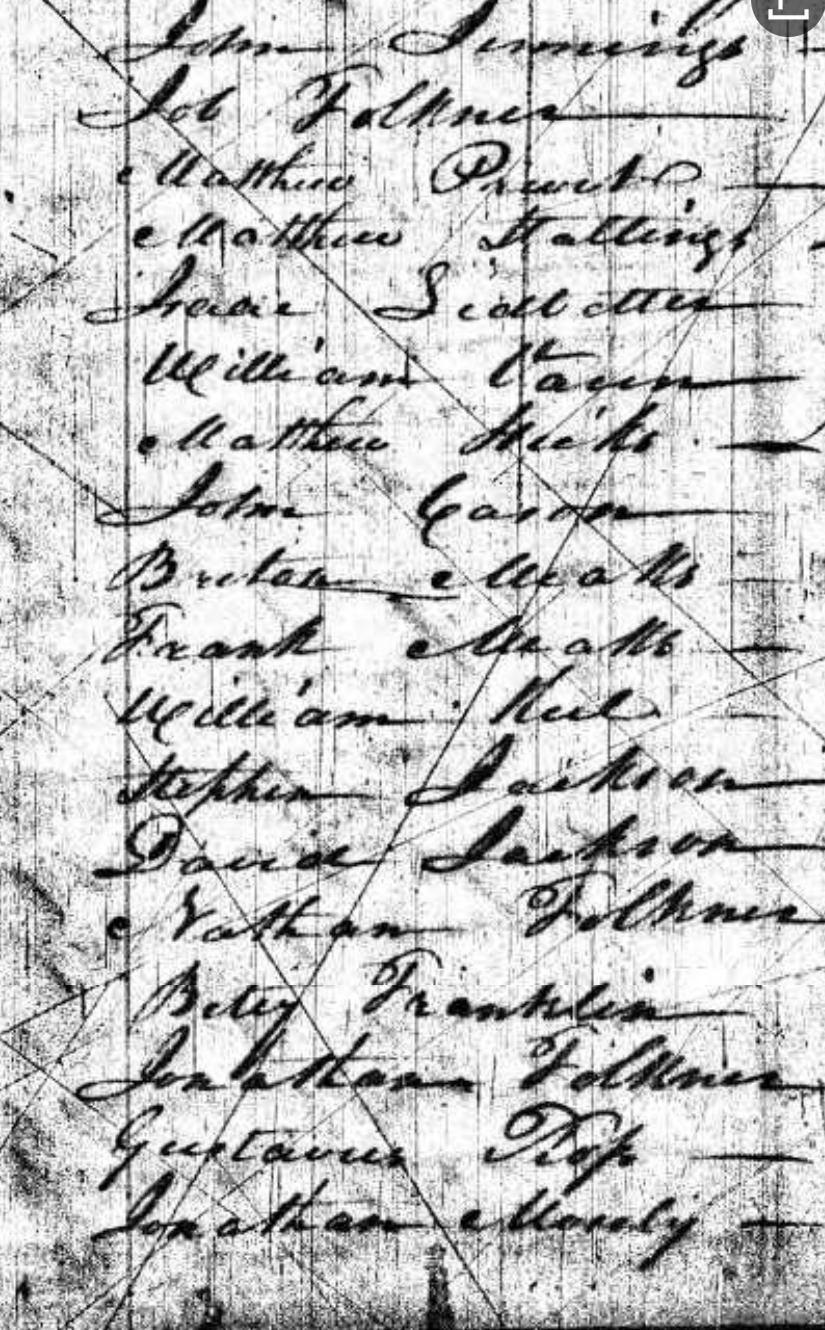 John Jennings
Job Folkner
Matthew Prewit
Matthew Stallings
Isaac Ledbetter
William Vaun
Matthew Hicks
John Cason
Briton
Frank
William
Stephen Jackson
David Jackson
Nathan Folkner
Betsy Franklin
Jonathan Folkner
Gustavus
Jonathan Mosely